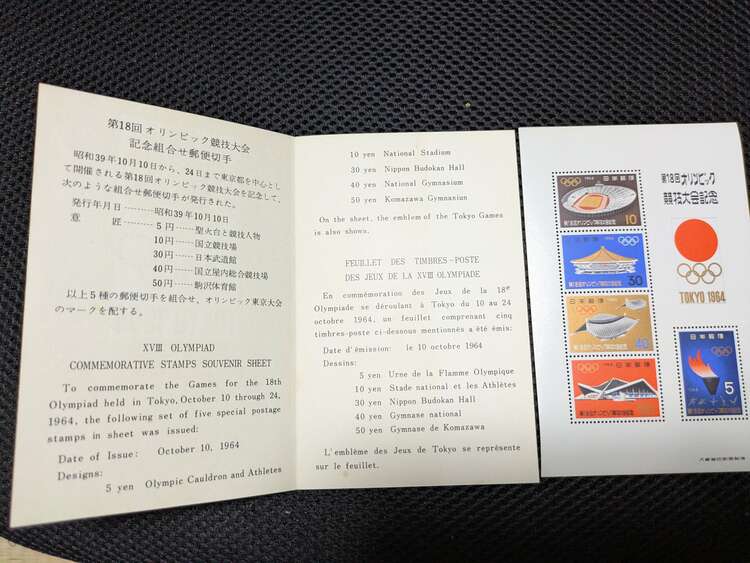 第18回オリンピック競技大会
記念組合せ郵便切手
昭和39年10月10日から、24日まで東京都を中心とし
て開催される第18回オリンピック競技大会を記念して、
次のような組合せ郵便切手が発行された。
発行年月日………昭和39年10月10日
意　　匠………5円………聖火台と競技人物
10円………国立競技場
30円………日本武道館
40円………国立屋内総合競技場
50円………駒沢体育館
以上5種の郵便切手を組合せ、オリンピック東京大会
のマークを配する。
XVIII OLYMPIAD
COMMEMORATIVE STAMPS SOUVENIR SHEET
To commemorate the Games for the 18th
Olympiad held in Tokyo, October 10 through 24,
1964, the following set of five special postage
stamps in sheet was issued:
Date of Issue: October 10, 1964
Designs:
5 yen Olympic Cauldron and Athletes
10 yen National Stadium
30 yen Nippon Budokan Hall
40 yen National Gymnasium
50 yen Komazawa Gymnasium
On the sheet, the emblem of the Tokyo Games
is also shown.
FEUILLET DES TIMBRES-POSTE
DES JEUX DE LA XVIII OLYMPIADE
En commémoration des Jeux de la 18e
Olympiade se déroulant à Tokyo du 10 au 24
octobre 1964, un feuillet comprenant cinq
timbres-poste ci-dessous mentionnés a été émis:
Date d'émission: le 10 octobre 1964
Dessins:
5 yen Urne de la Flamme Olympique
10 yen Stade national et les Athlètes
30 yen Nippon Budokan Hall
40 yen Gymnase national
50 yen Gymnase de Komazawa
L'emblème des Jeux de Tokyo se représente
sur le feuillet.
1964 日本郵便
10
第18回オリンピック競技大会記念
日本郵便
30
第18回オリンピック競技大会記念
日本郵便
1964
40
第18回オリンピック競技大会記念
日本郵便
第18回オリンピック競技大会記念
第18回オリンピック
競技大会記念
TOKYO 1964
日本郵便
1964
5
第18回オリンピック競技大会記念
大蔵省印刷局製造